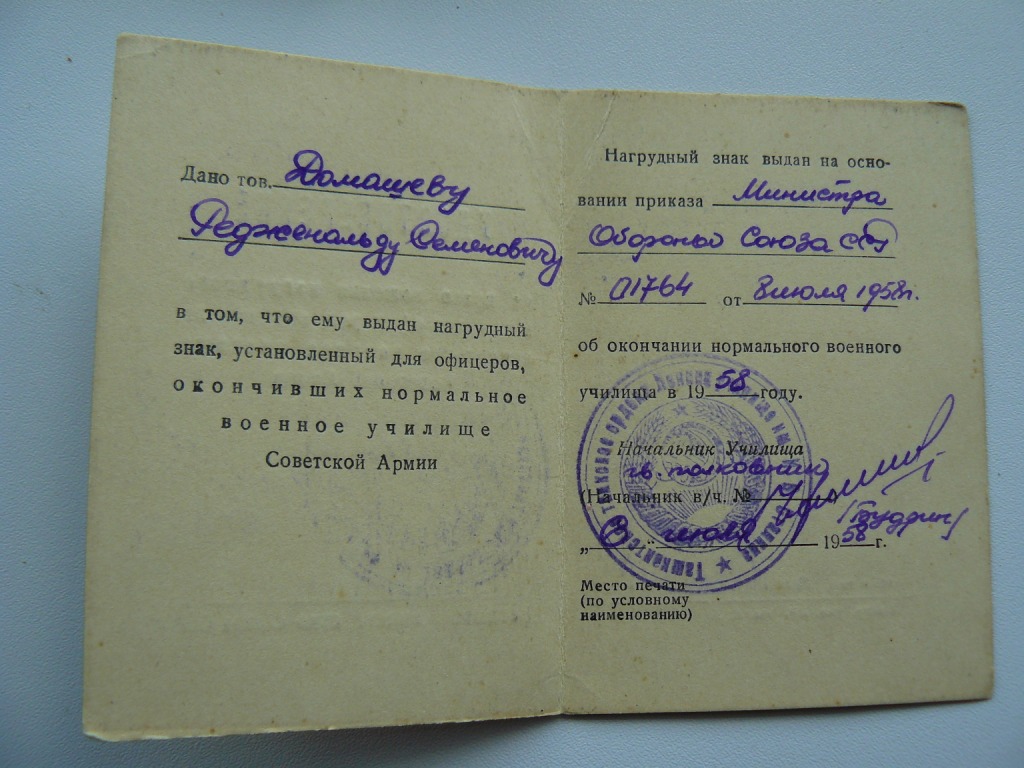 Дано тов. Домашеву
Редженальду Семеновичу
в том, что ему выдан нагрудный
знак, установленный для офицеров,
окончивших нормальное
военное училище
Советской Армии
Нагрудный знак выдан на осно-
вании приказа Министра
Обороны Союза ССР
№ 01764 от 8 июля 1958 г.
об окончании нормального военного
училища в 1958 году.
Начальник Училища
гв. полковник
(Начальник в/ч. №
„8“ июля 1958 г.
Место печати
(по условному
наименованию)
Ташкентское ордена Ленина